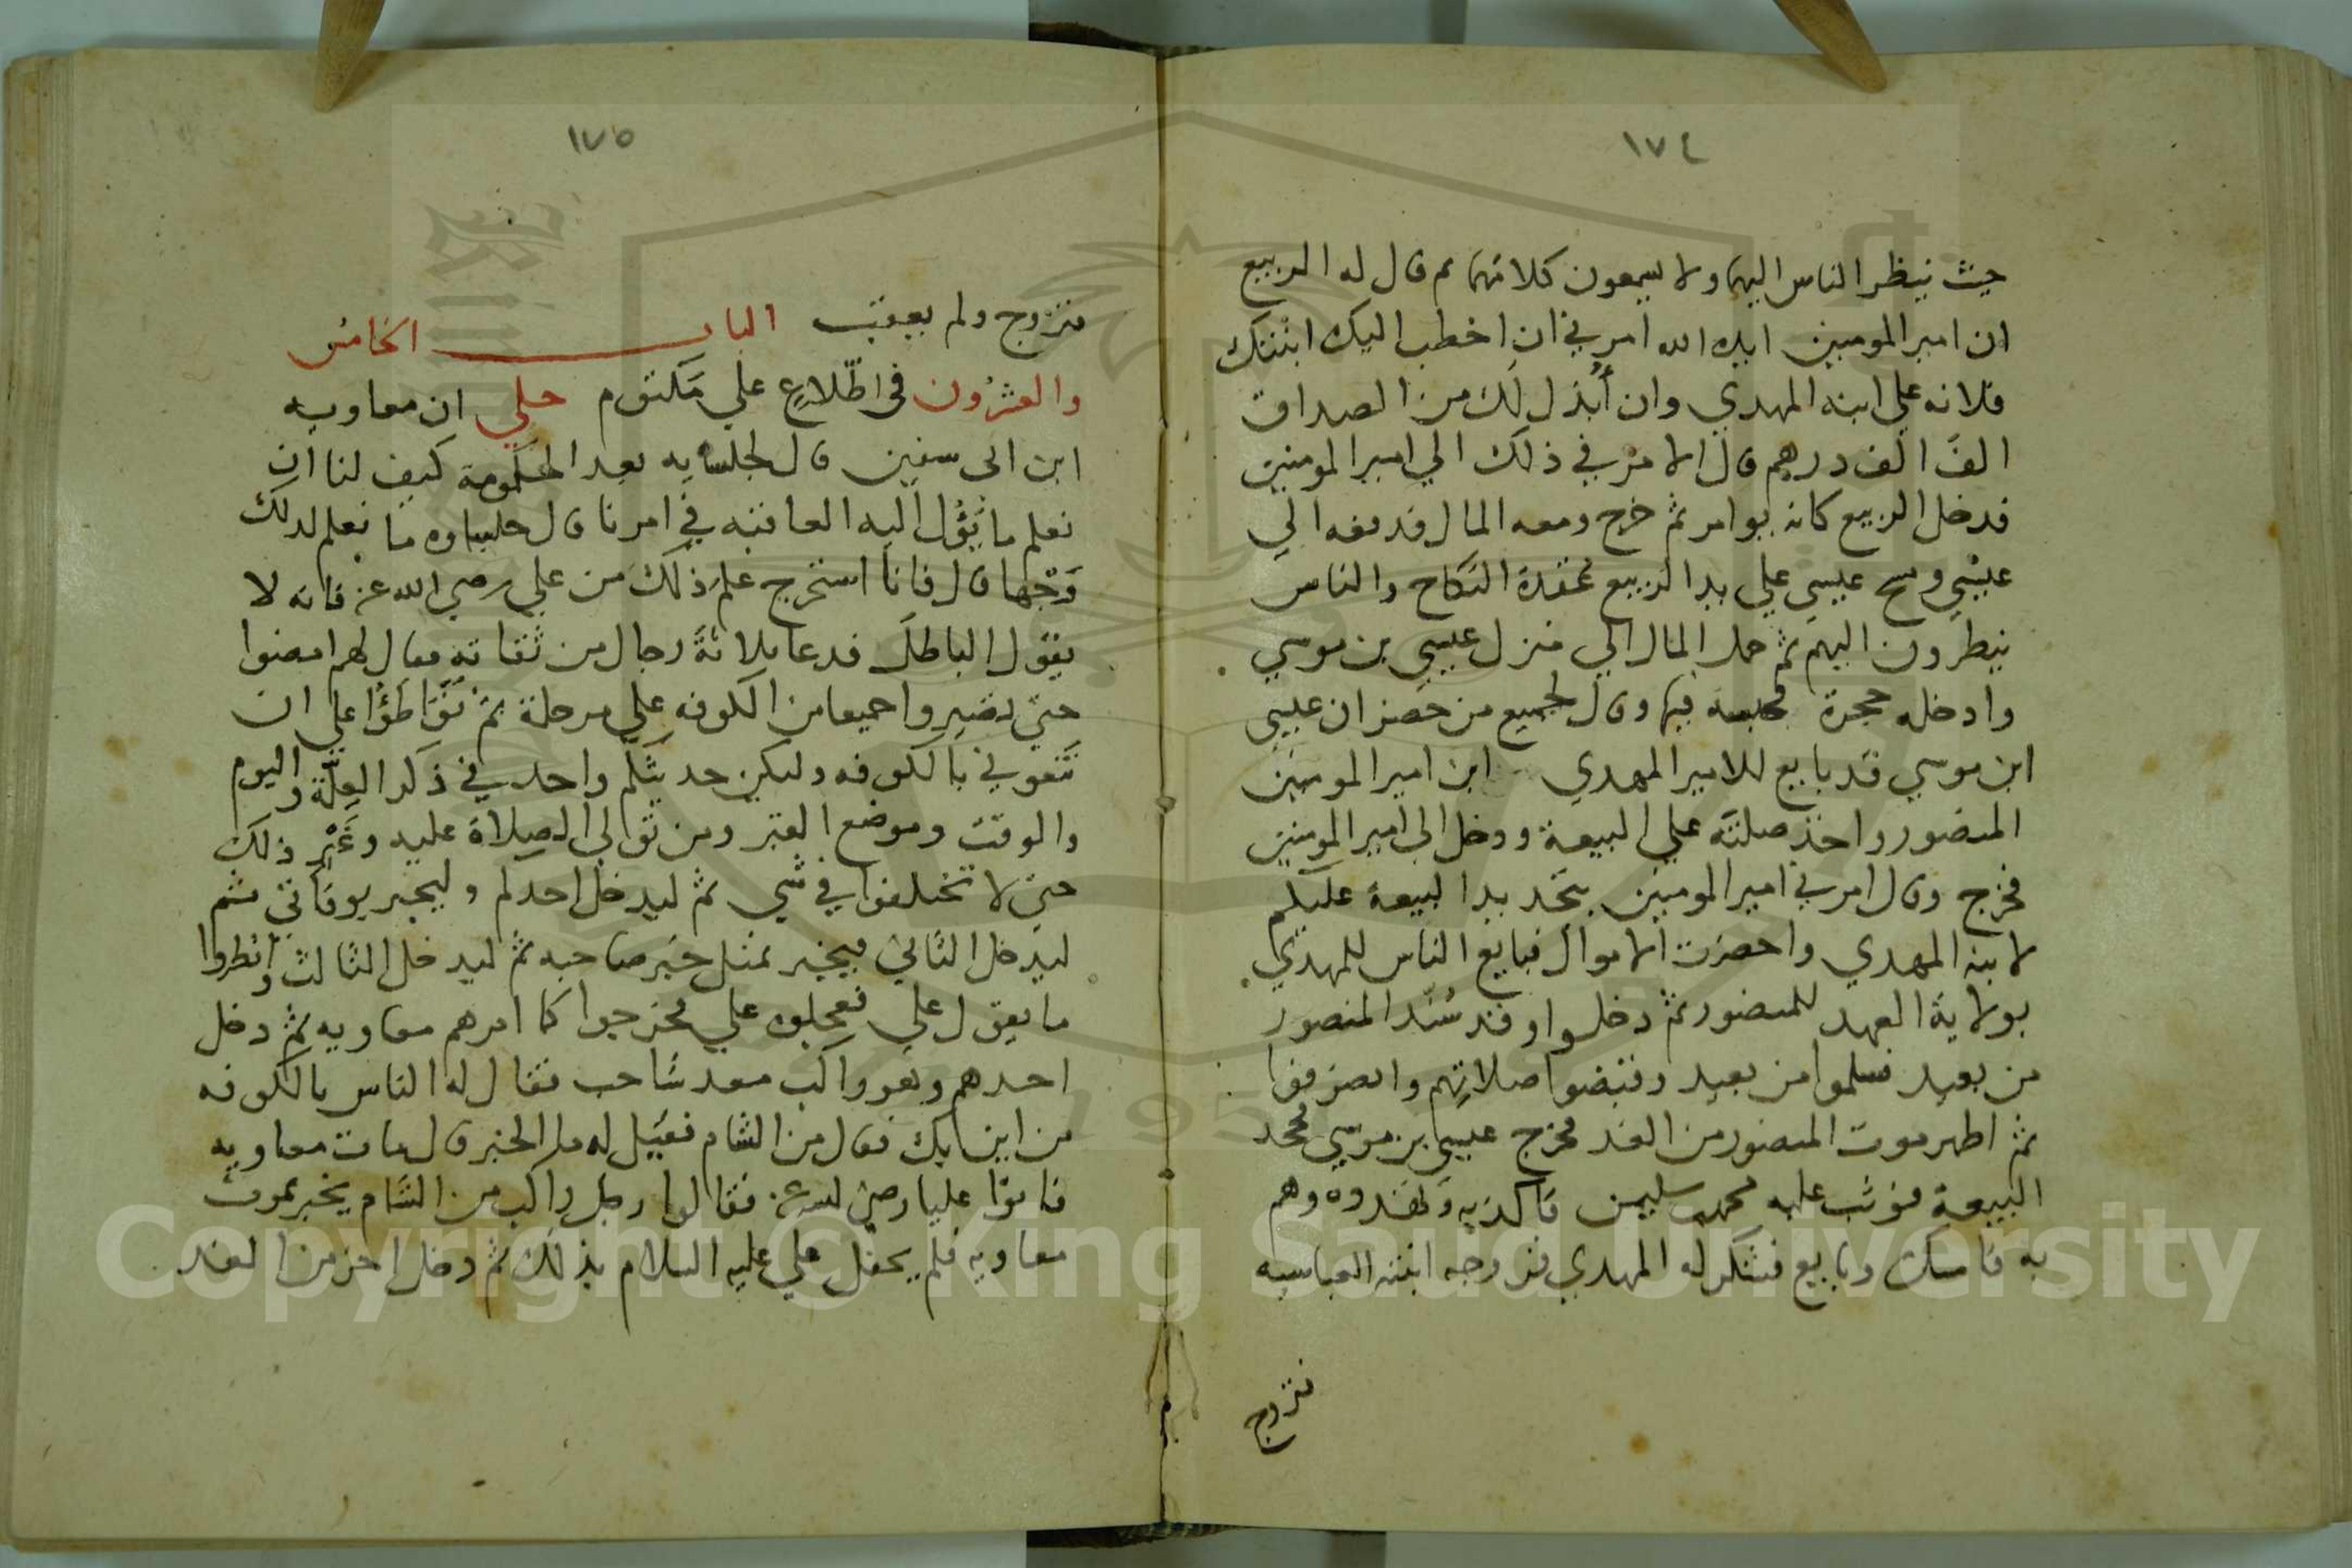 ١٧٤
حيث ينظر الناس اليهما ولا يسمعون كلامهما ثم قال له الربيع
ان امير المومنين ايده الله امرني ان اخطب اليك ابنتك
فلانه علي ابنه المهدي وان أبذل لك من الصداق
الف الف درهم قال الامر في ذلك الي امير المومنين
فدخل الربيع كانه يوامر ثم خرج ومعه المال فدفعه الي
عيسي ومسح عيسي علي يد الربيع عقدة النكاح والناس
ينظرون اليهم ثم حمل المال الي منزل عيسي بن موسي
وادخله حجرة فحبسه فيها وقال لجميع من حضر ان عيسي
ابن موسي قد بايع للامير المهدي ابن امير المومنين
المنصور واخذ صلته علي البيعة ودخل الي امير المومنين
فخرج وقال امرني امير المومنين بتجديد البيعة عليكم
لابنه المهدي واحضرت الاموال فبايع الناس للمهدي
بولاية العهد للمنصور ثم دخلوا وقد سُنّد المنصور
من بعيد فسلموا من بعيد وقبضوا صلاتهم وانصرفوا
ثم اظهر موت المنصور من الغد فخرج عيسي بن موسي فجحد
البيعة فوثب عليه محمد بن سليمن فاكذبه وتهددوه وهم
به فامسك وبايع فشكر له المهدي فزوجه ابنته العباسيه
فتزوج
١٧٥
فتزوج ولم يعقب الباب الخامس
والعشرُون في اطّلاعٍ علي مَكتوم حكي ان معاويه
ابن ابي سفين قال لجلسايه بعد الحكومة كيف لنا ان
نعلم ما يَؤُل اليه العاقبه في امرنا قال جلساوه ما نعلم لذلك
وَجْها قال فانا استخرج علم ذلك من علي رضي الله عنه فانه لا
يقول الباطل فدعا بثلاثةَ رجال من ثقاته فقال لهم امضوا
حتي تصيروا جميعا من الكوفه علي مرحلة ثم تَوَاطَؤُا علي ان
تَنعوني بالكوفه وليكن حديثكم واحد في ذكر العِلّة واليوم
والوقت وموضع القبر ومن تولي الصلاة عليه وغَيْرِ ذلك
حتي لا تختلفوا في شي ثم ليدخل احدكم وليخبر بوفاتي ثم
ليدخل الثاني فيخبر بمثل خَبَر صاحبه ثم ليدخل الثالث وانظروا
ما يقول علي فعجلوه علي فخرجوا كما امرهم معاويه ثم دخل
احدهم وهو راكب مغد شاحب فقال له الناس بالكوفه
من اين بك فقال من الشام فقيل له ما الخبر قال مات معاويه
فاتوّا عليا رضي الله عنه فقالوا رجل راكب من الشام يخبر بموت
معاويه فلم يحفل علي عليه السلام بذلك ثم دخل اخر من الغد
Copyright © King Saud University